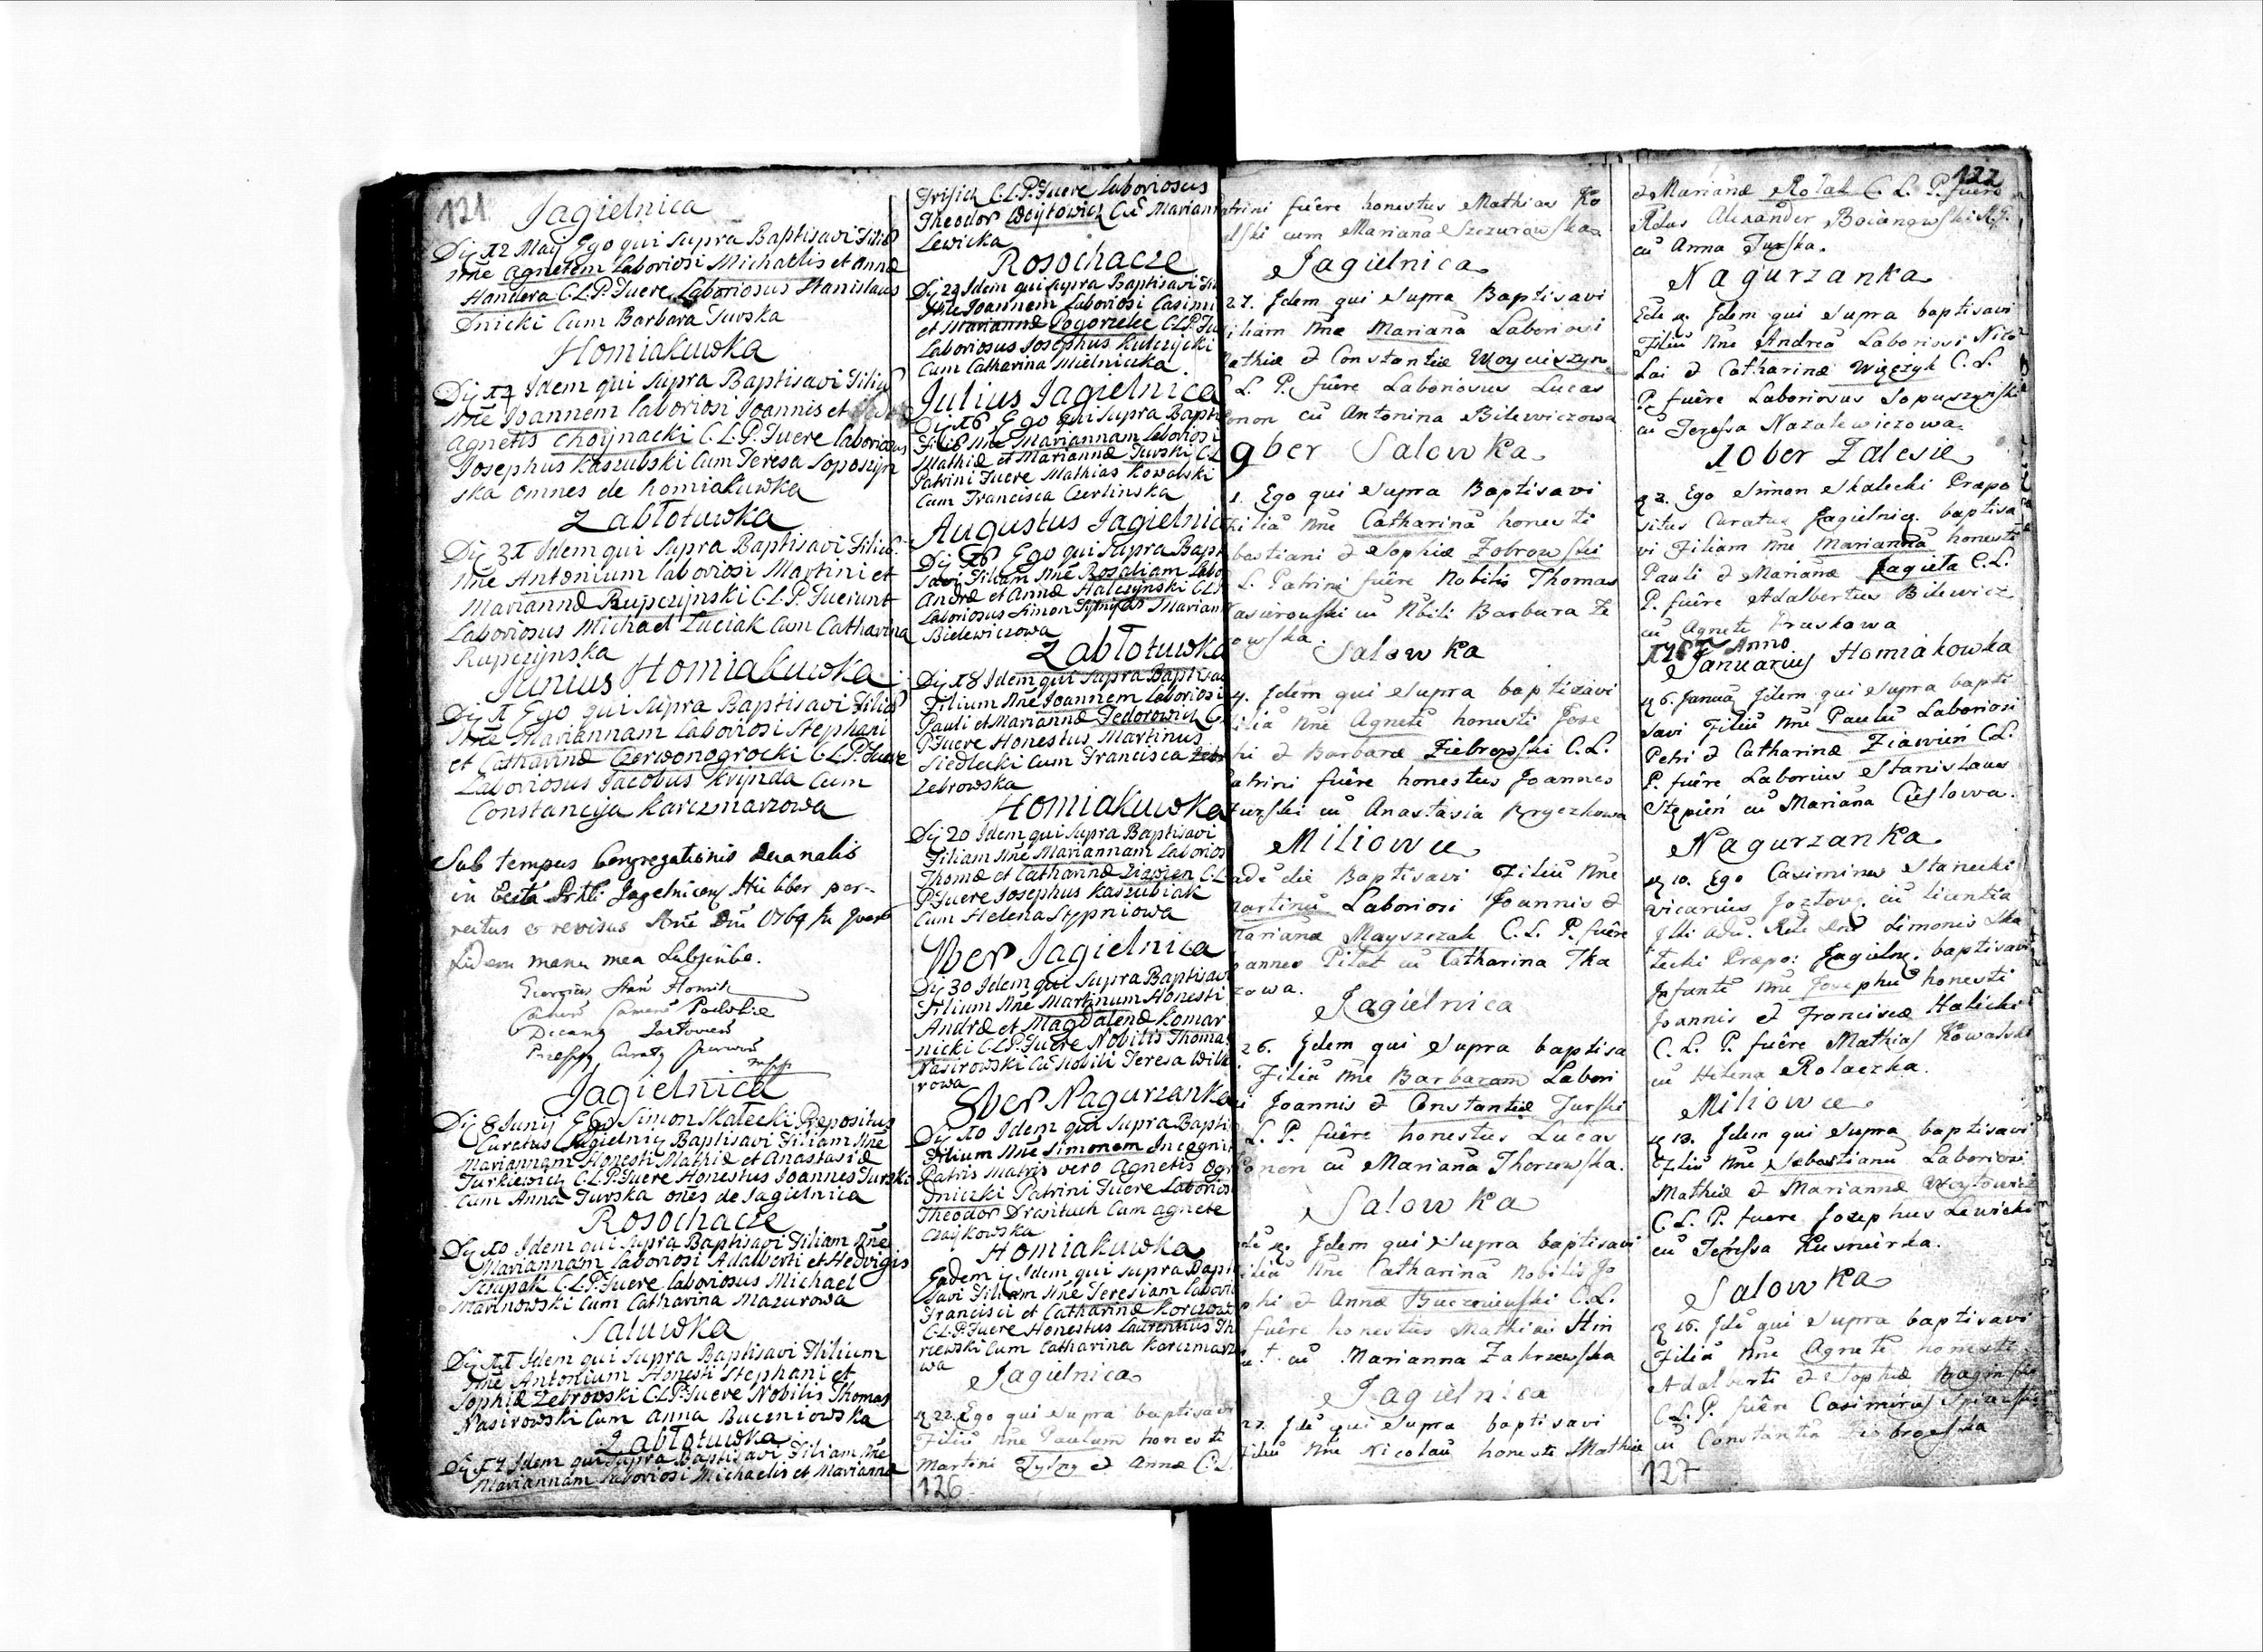 121
Jagielnica
Dij 12 May Ego qui supra Baptisavi Filiã
nñe Agnetem Laboriosi Michaelis et Annæ
Handera C.L.P. Fuere Laboriosus Stanislaus
Cum Barbara Turska
Homiakuwka
Dij Idem qui supra Baptisavi Filiũ
nñe Joannem laboriosi Joannis et
Agnetis Choynacki C.L.P. Fuere laboriosus
Josephus Kaszubski Cum Teresa Soposzyn
ska omnes de homiakuwka
Zabłotuwka
Dij 31 Idem qui supra Baptisavi Filiũ
nñe Antonium laboriosi Martini et
Mariannæ Rupczynski C.L.P. Fuerunt
Laboriosus Michael Luciak Cum Catharina
Rupczynska
Junius Homiakuwka
Dij 1 Ego qui supra Baptisavi Filiã
nñe Mariannam Laboriosi Stephani
et Catharinæ Czerwonogrocki C.L.P. Fuere
Laboriosus Jacobus Krynda Cum
Constancyja Karczmarzowa
Sub tempus Congregationis
in Jagelnicen Hic liber per-
rectus & revisus
fidem manu mea Subscribo.
Jagielnica
Dij 8 Junij Ego Simon Skałecki Prepositus
Curatus Jagielnicy Baptisavi Filiam nñe
Mariannam Honesti Mathiæ et Anastasiæ
Turkiewicz C.L.P. Fuere Honestus Joannes Turski
Cum Anna Turska oñes de Jagielnica
Rosochacze
Dij 10 Idem qui supra Baptisavi Filiam nñe
Mariannam laboriosi Adalberti et Hedvigis
Szupak C.L.P. Fuere laboriosus Michael
Marinowski Cum Catharina Mazurowa
Saluwka
Dij 11 Idem qui supra Baptisavi Filium
nñe Antonium Honesti Stephani et
Sophiæ Zebrowski C.L.P. Fuere Nobilis Thomas
Nasirowski Cum Anna Buczniowska
Zabłotuwka
Dij 17 Idem qui supra Baptisavi Filiam nñe
Mariannam laboriosi Michaelis et Mariannæ
C.L.P. Fuere Laboriosus
Theodor Woytowicz Cũ Mariann
Lewicka
Rosochacze
Dij 29 Idem qui supra Baptisavi Fil
nñe Joannem Laboriosi Casimi
et Mariannæ Pogorzelec C.L.P. Fu
Laboriosus Josephus Kulczycki
Cum Catharina Mielniczka
Julius Jagielnica
Dij 16 Ego qui supra Bapti
Filiã nñe Mariannam Laboriosi
Mathiæ et Mariannæ Turski C.L.
Patrini Fuere Mathias Kowalski
Cum Francisca Czerlinska
Augustus Jagielnica
Dij 16 Ego qui supra Bapt
savi Filiam nñe Rosaliam Labo
Andræ et Annæ Halczynski C.L.P.
Laboriosus Simon Mariann
Bielewiczowa
Zabłotuwka
Dij 18 Idem qui supra Baptisav
Filium nñe Joannem laboriosi
Pauli et Mariannæ Fedorowicz C.
P. Fuere Honestus Martinus
Siedlecki Cum Francisca Zebr
Zebrowska
Homiakuwka
Dij 20 Idem qui supra Baptisavi
Filiam nñe Mariannam Laborios
Thomæ et Catharinæ Ziawien C.L
P. Fuere Josephus Kaszubiak
Cum Helena Stypniowa
7ber Jagielnica
Dij 30 Idem qui supra Baptisavi
Filium nñe Martinum Honesti
Andræ et Magdalenæ Komar
nicki C.L.P. Fuere Nobilis Thomas
Nasirowski Cũ Nobili Teresa Wilk
rowa
8ber Nagurzanka
Dij 10 Idem qui supra Bapti
Filium nñe Simonem Incogniti
Patris matris vero Agnetis Ogr
dniczki Patrini Fuere Laborios
Theodor Drasituch Cum Agnete
Czaykowska
Homiakuwka
Eadem ij Idem qui supra Bapti
savi Filiam nñe Teresiam Labori
Francisci et Catharinæ Korczows
C.L.P. Fuere Honestus Laurentius Th
rzewski Cum Catharina Karczmarz
wa
Jagielnica
22. Ego qui supra baptisavi
Filiũ nñe Paulum honesti
Martini Zylny & Annæ C.L.
126
122
atrini fuêre honestus Mathias Ko
alski cum Mariana Szczurowska
Jagielnica
27. Idem qui supra Baptisavi
iliam nñe Marianã Laboriosi
athiæ & Constantiæ Woyciszyn
L. P. fuêre Laboriosus Lucas
onon cũ Antonina Bilewiczowa
9ber Salowka
1. Ego qui supra Baptisavi
iliã nñe Catharinã honesti
bastiani & Sophiæ Zobrowski
L. Patrini fuêre Nobilis Thomas
asierowski cũ Nbili Barbara Ze
owska.
Salowka
4. Idem qui supra baptizavi
iliã nñe Agnetẽ honesti Jose
hi & Barbaræ Ziebrowski C.L.
atrini fuêre honestus Joannes
turski cũ Anastasia
Miliowce
adẽ die Baptisavi Filiũ nñe
artinũ Laboriosi Joannis &
arianæ Mayszczak C. L. P. fuêre
oannes Pilat cũ Catharina Tka
zowa.
Jagielnica
26. Idem qui supra baptisa
Filiã nñe Barbaram Labori
i Joannis & Constantiæ Turski
L. P. fuêre honestus Lucas
onon cũ Mariana Thorzewska.
Salowka
Idem qui supra baptisavi
iliã nñe Catharinã nobilis Jo
phi & Annæ Buczniewski C.L.
fuêre honestus Mathias Hin
cũ Marianna Zakrzewska
Jagielnica
27. Idẽ qui supra baptisavi
Filiũ nñe Nicolaũ honesti Mathiæ
& Marianæ Rolak C. L. P. fuêre
Rdus Alexander Bocianowski
cũ Anna Turska.
Nagurzanka
Idem qui supra baptisavi
Filiũ nñe Andreã Laboriosi Nico
lai & Catharinæ Więczyk C. L.
P. fuêre Laboriosus Sopuszynski
cũ Teressa Nazalewiczowa.
10ber Zalesie
2. Ego Simon Skalecki Præpo
situs Curatus Jagielnicz. baptisa
vi Filiam nñe Mariannã honesti
Pauli & Marianæ Jagieła C.L.
P. fuêre Adalbertus Bilewicz
cũ Agnete Pruskowa
Anno
Januarius Homiakowka
6. Januar Idem qui supra bapti
savi Filiũ nñe Paulũ Laboriosi
Petri & Catharinæ Ziawien C.L.
P. fuêre Laborius Stanislaus
Stępień cũ Mariana Cieslowa.
Nagurzanka
10. Ego Casimirus Stanecki
vicarius cũ licentia
Simonis Ska
łecki Præpo: Jagielnz: baptisavi
Infantẽ nñe Josephũ honesti
Joannis & Franciscæ Halicki
C. L. P. fuêre Mathias Kowalski
cũ Helena Rolaczka.
Miliowce
13. Idem qui supra baptisavi
Filiũ nñe Sebastianũ Laboriosi
Mathiæ & Mariannæ Woytowicz
C. L. P. fuere Josephus Lewicki
cũ Teressa Kusnierka.
Salowka
16. Idẽ qui supra baptisavi
Filiã nñe Agnetẽ honesti
Adalberti & Sophiæ Baginski
C.L.P. fuêre Casimirus
cũ Constantia
127